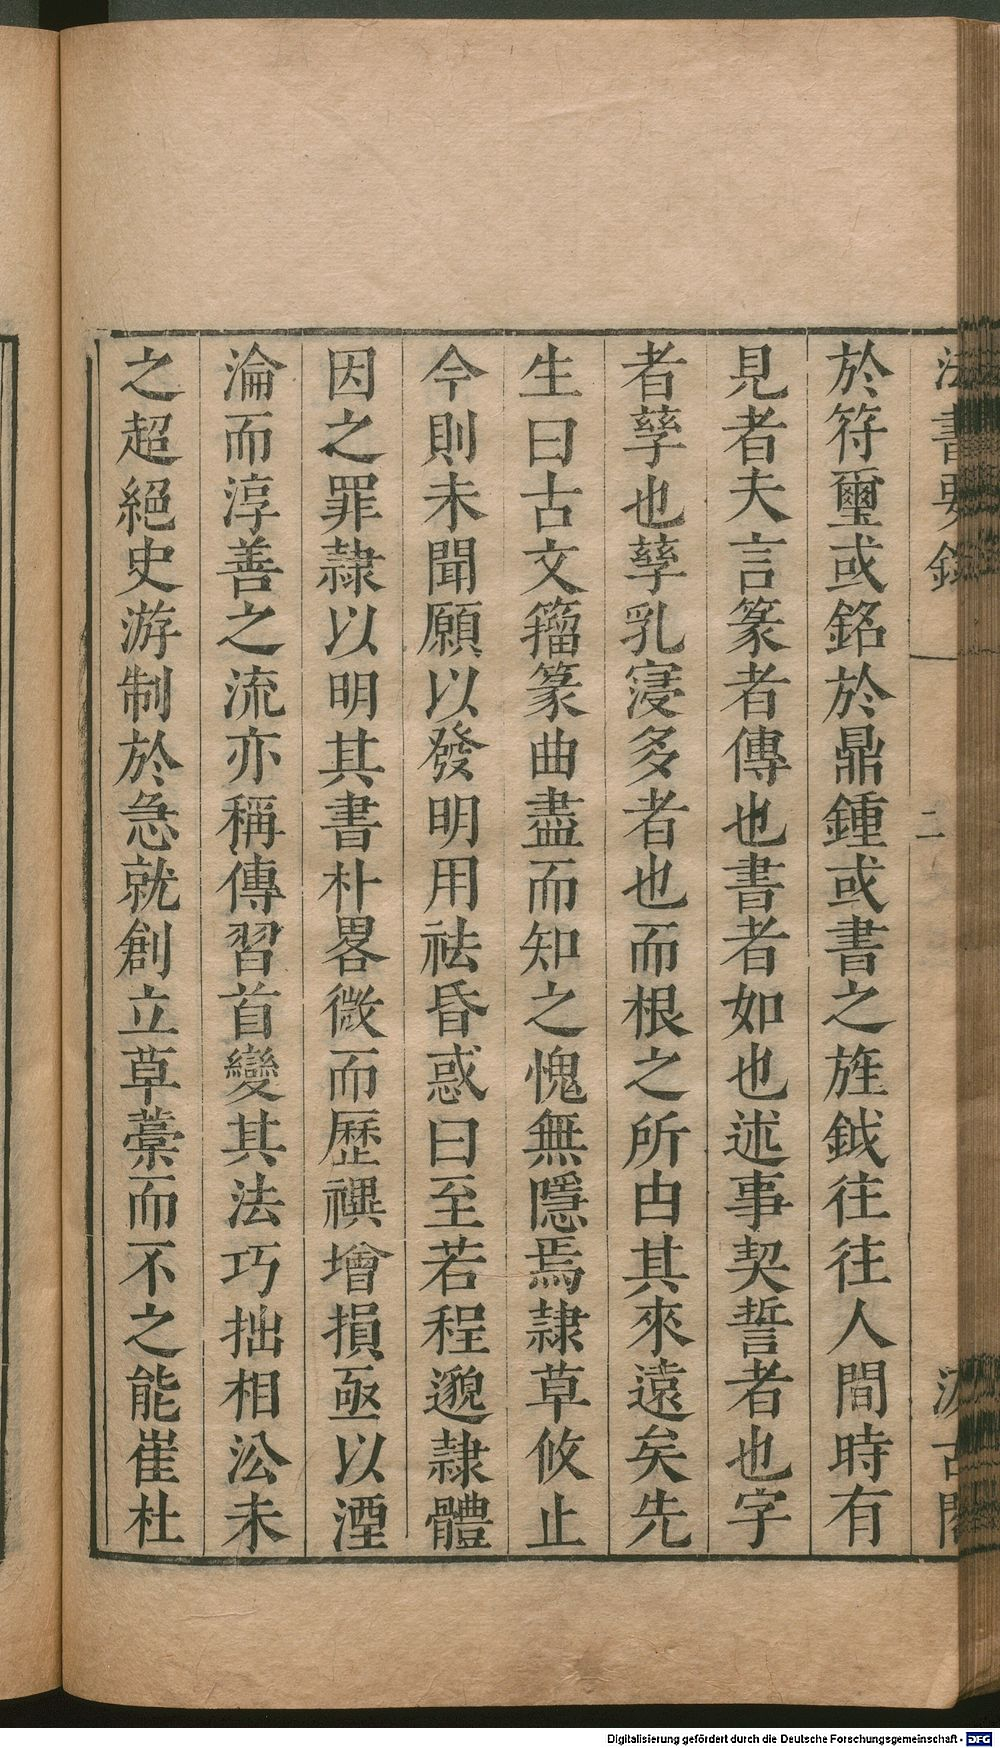 法書要錄
二
汲古閣
於符璽或銘於鼎鍾或書之旌鉞往往人間時有
見者夫言篆者傳也書者如也述事契誓者也字
者孳也孳乳寖多者也而根之所由其來遠矣先
生曰古文籀篆曲盡而知之愧無隱焉隷草攸止
今則未聞願以發明用祛昏惑曰至若程邈隷體
因之罪隷以明其書朴畧微而歷禩增損亟以湮
淪而淳善之流亦稱傳習首變其法巧拙相㳂未
之超絕史游制於急就創立草藳而不之能崔杜
Digitalisierung gefördert durch die Deutsche Forschungsgemeinschaft - DFG